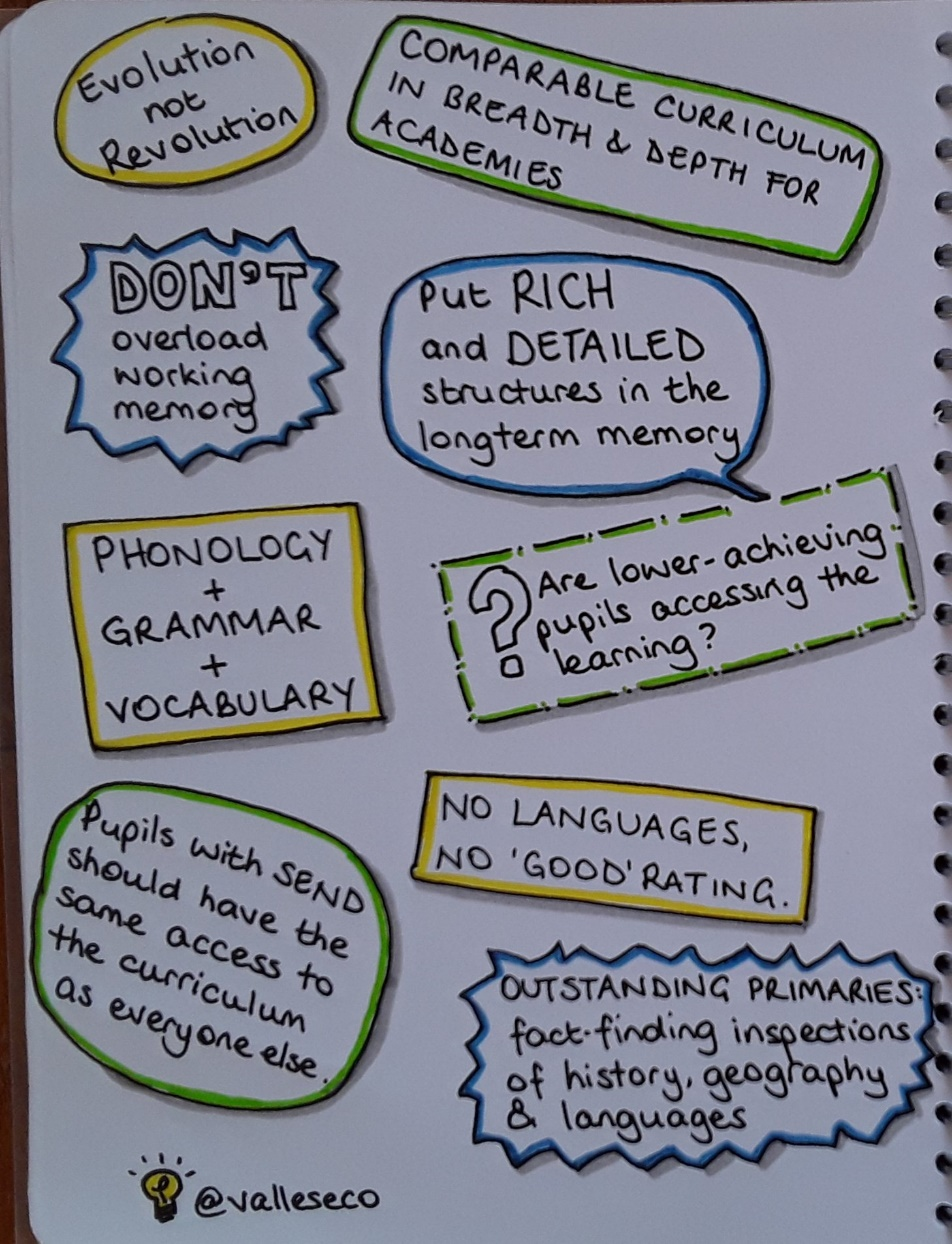 Evolution
not
Revolution
COMPARABLE CURRICULUM
IN BREADTH & DEPTH FOR
ACADEMIES
DON'T
overload
working
memory
Put RICH
and DETAILED
structures in the
longterm memory
PHONOLOGY
+
GRAMMAR
+
VOCABULARY
? Are lower-achieving
pupils accessing the
learning?
Pupils with SEND
should have the
same access to
the curriculum
as everyone else.
NO LANGUAGES,
NO 'GOOD' RATING.
OUTSTANDING PRIMARIES:
fact-finding inspections
of history, geography
& languages
@valleseco